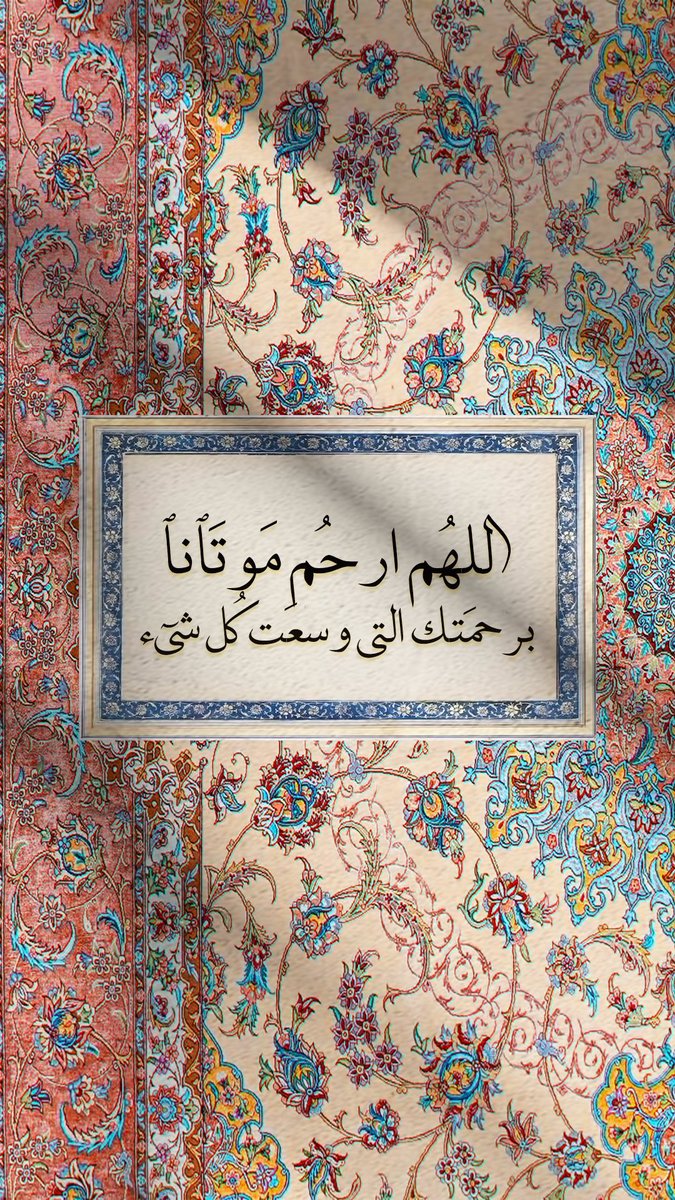 اللهُم ارحُم مَوتَآنآ
برحمَتك التي وسعَت كُل شيٓء